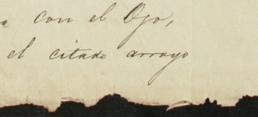 con el Ojo,
el citado arroyo